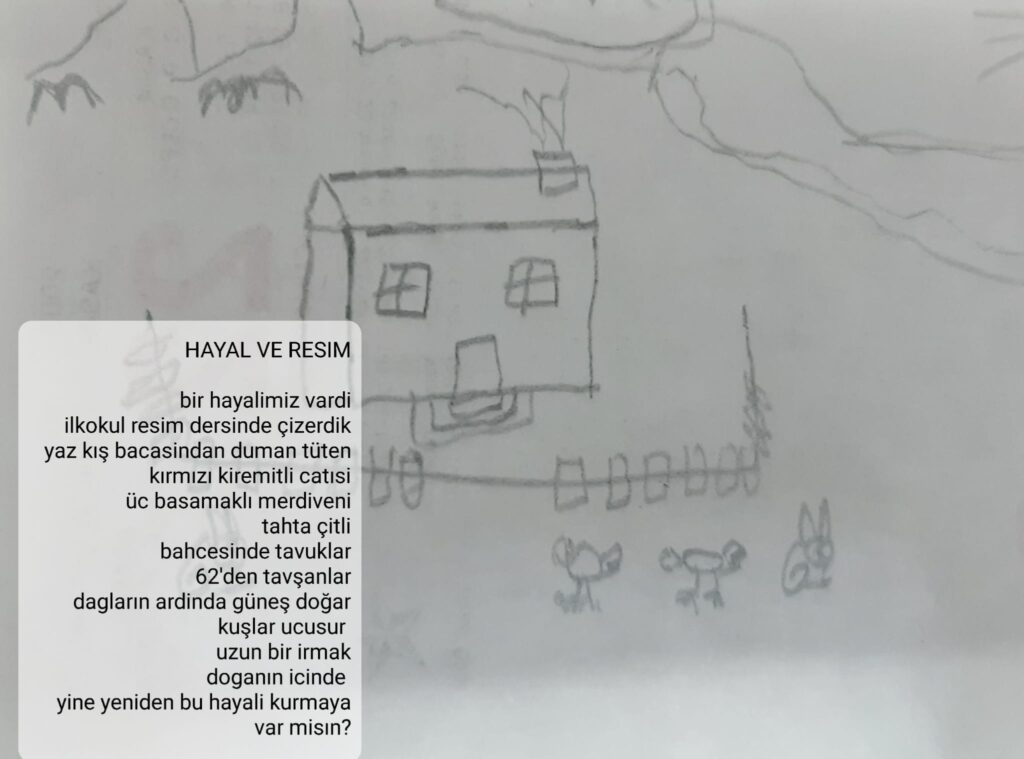 HAYAL VE RESIM
bir hayalimiz vardi
ilkokul resim dersinde çizerdik
yaz kış bacasindan duman tüten
kırmızı kiremitli catısi
üc basamaklı merdiveni
tahta çitli
bahcesinde tavuklar
62'den tavşanlar
dagların ardinda güneş doğar
kuşlar ucusur
uzun bir irmak
doganın icinde
yine yeniden bu hayali kurmaya
var misın?